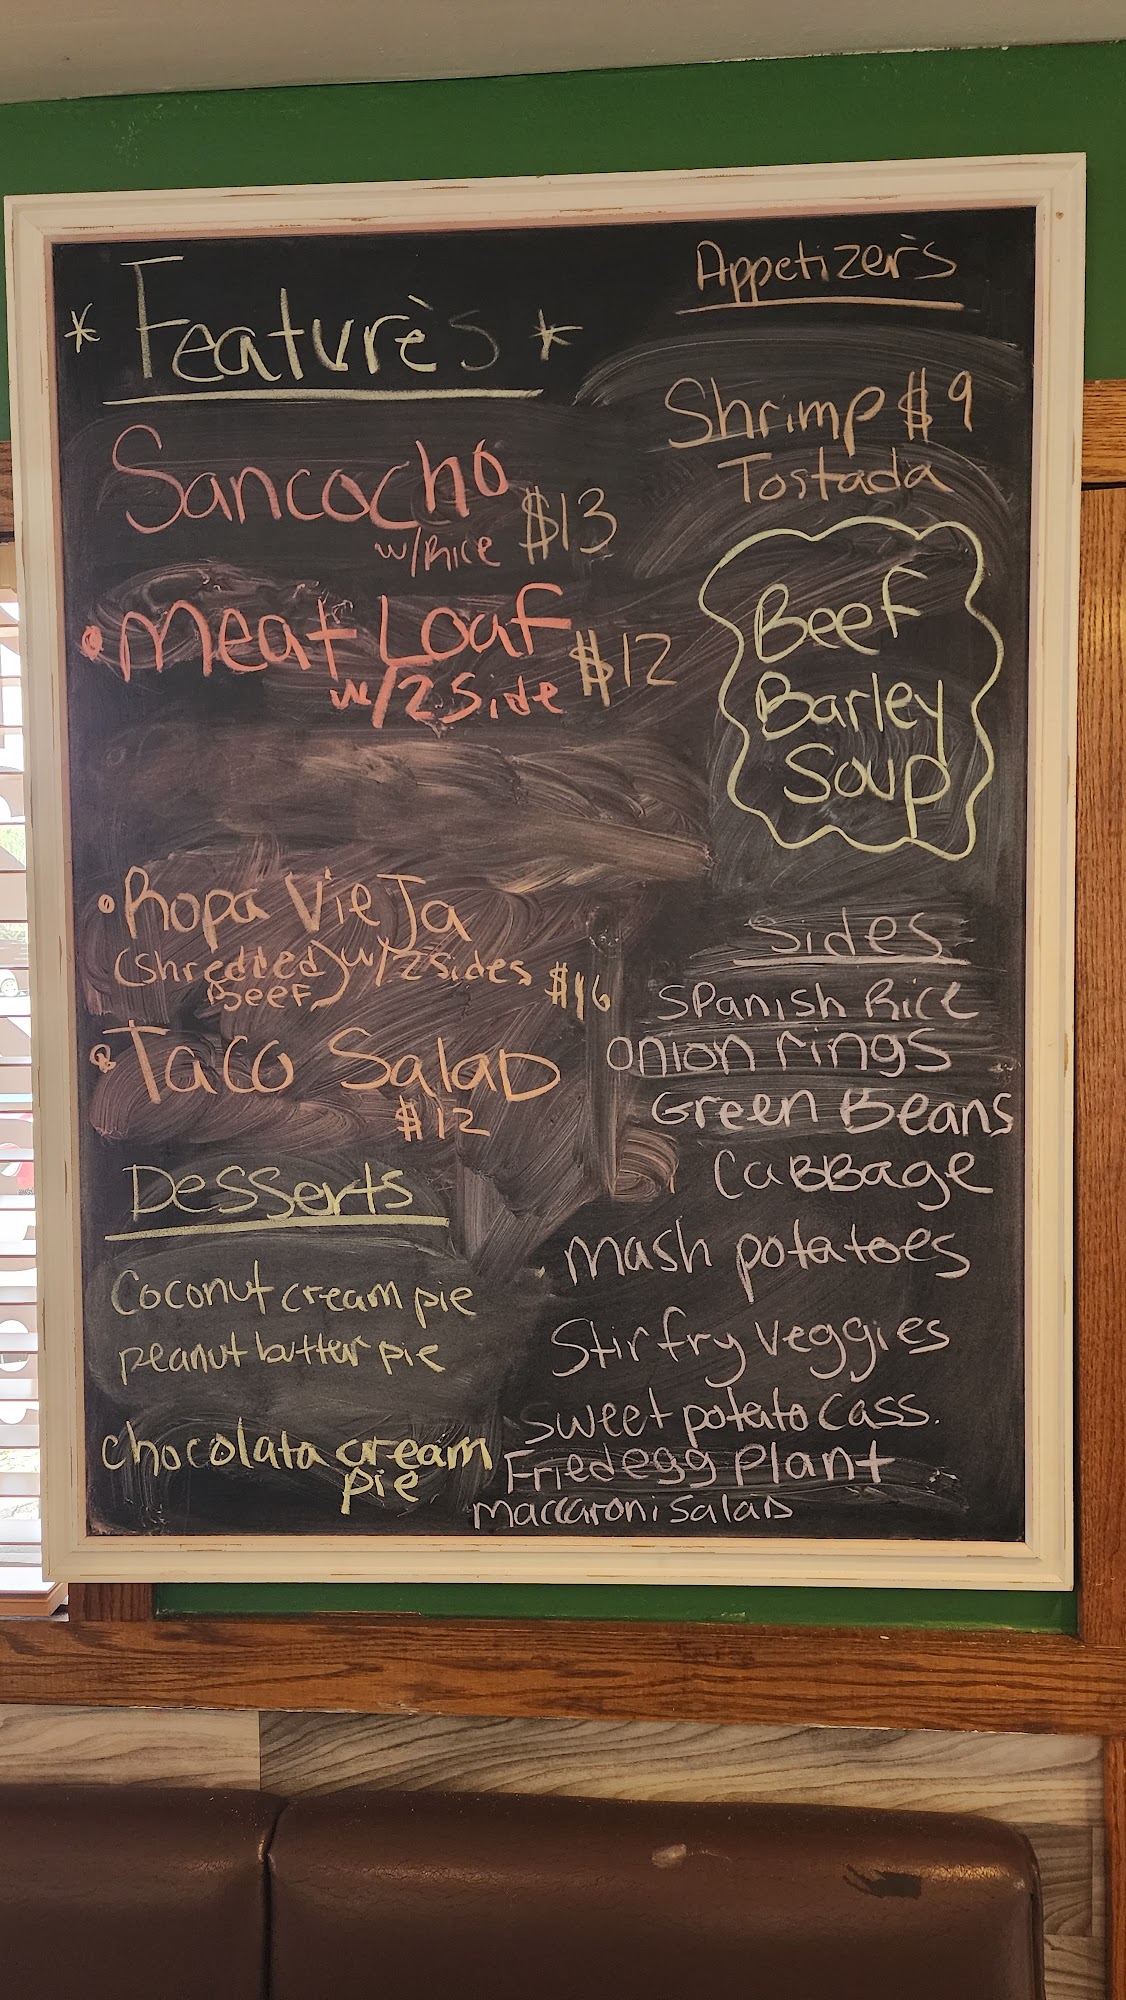 * Feature's *
Sancocho
w/Rice $13
• Meat Loaf
w/2 Side $12
• Ropa VieJa
(Shredded Beef) w/2 Sides $16
• Taco Salad
$12
Desserts
Coconut cream pie
peanut butter pie
chocolata cream
pie
Appetizer's
Shrimp $9
Tostada
Beef
Barley
Soup
Sides
Spanish Rice
Onion rings
Green Beans
Cabbage
Mash potatoes
Stir fry Veggies
Sweet potato Cass.
Fried egg Plant
Maccaroni Salad